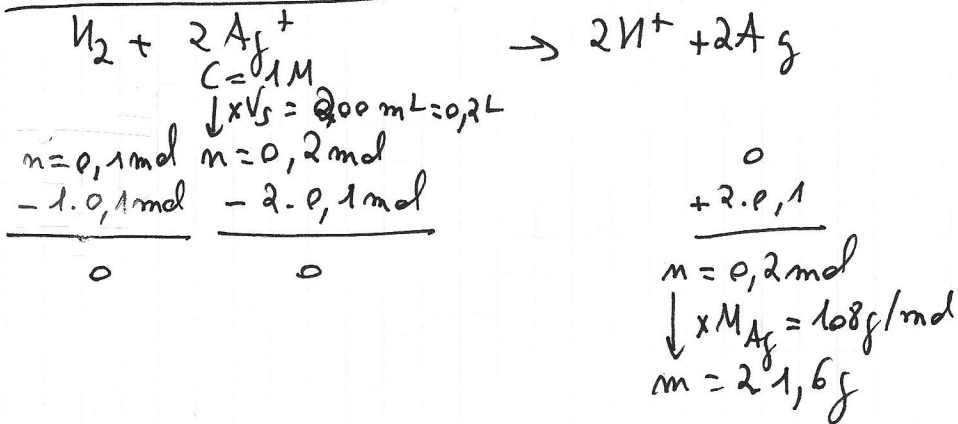 H₂ + 2 Ag⁺ → 2H⁺ + 2Ag
C = 1M
↓ x Vs = 200 mL = 0,2L
n = 0,1 mol n = 0,2 mol 0
- 1. 0,1 mol - 2. 0,1 mol + 2. 0,1
0 0 n = 0,2 mol
↓ x M Ag = 108 g/mol
m = 21,6 g